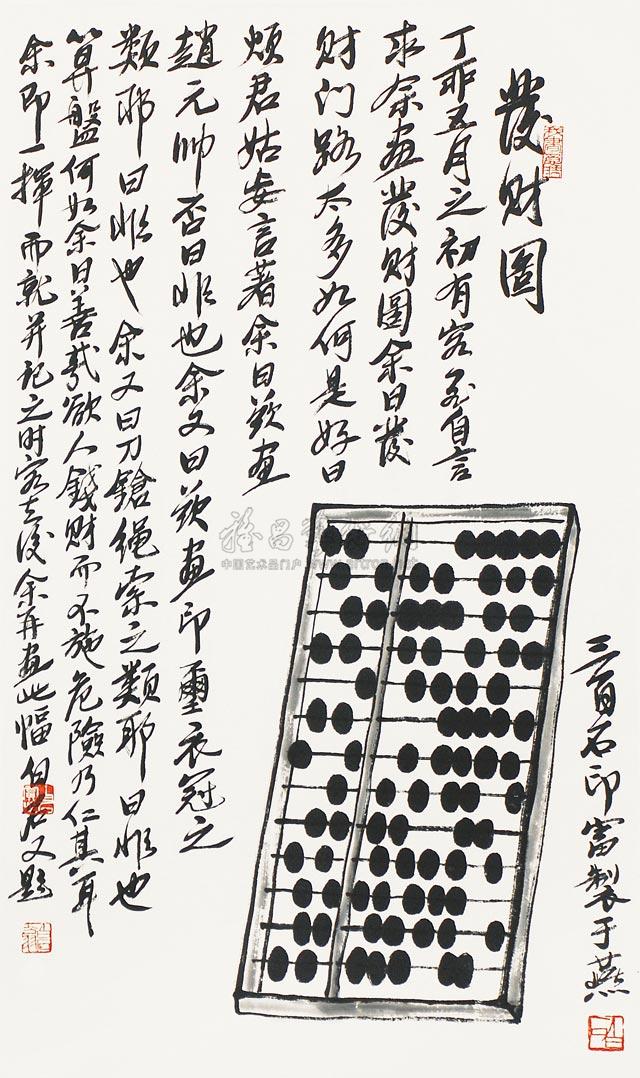 發财圖
丁卯五月之初有客至自言
求余畫發财圖余曰發
财门路太多如何是好曰
烦君姑妄言著余曰欲畫
趙元帅否曰非也余又曰欲畫印璽衣冠之
類耶曰非也余又曰刀鎗绳索之類耶曰非也
算盤何如余曰善哉欲人錢财而不施危險乃仁具耳
余即一揮而就并记之时客去後余再畫此幅白石又题
三百石印富製于燕
中国艺术品门户 www.artron.net